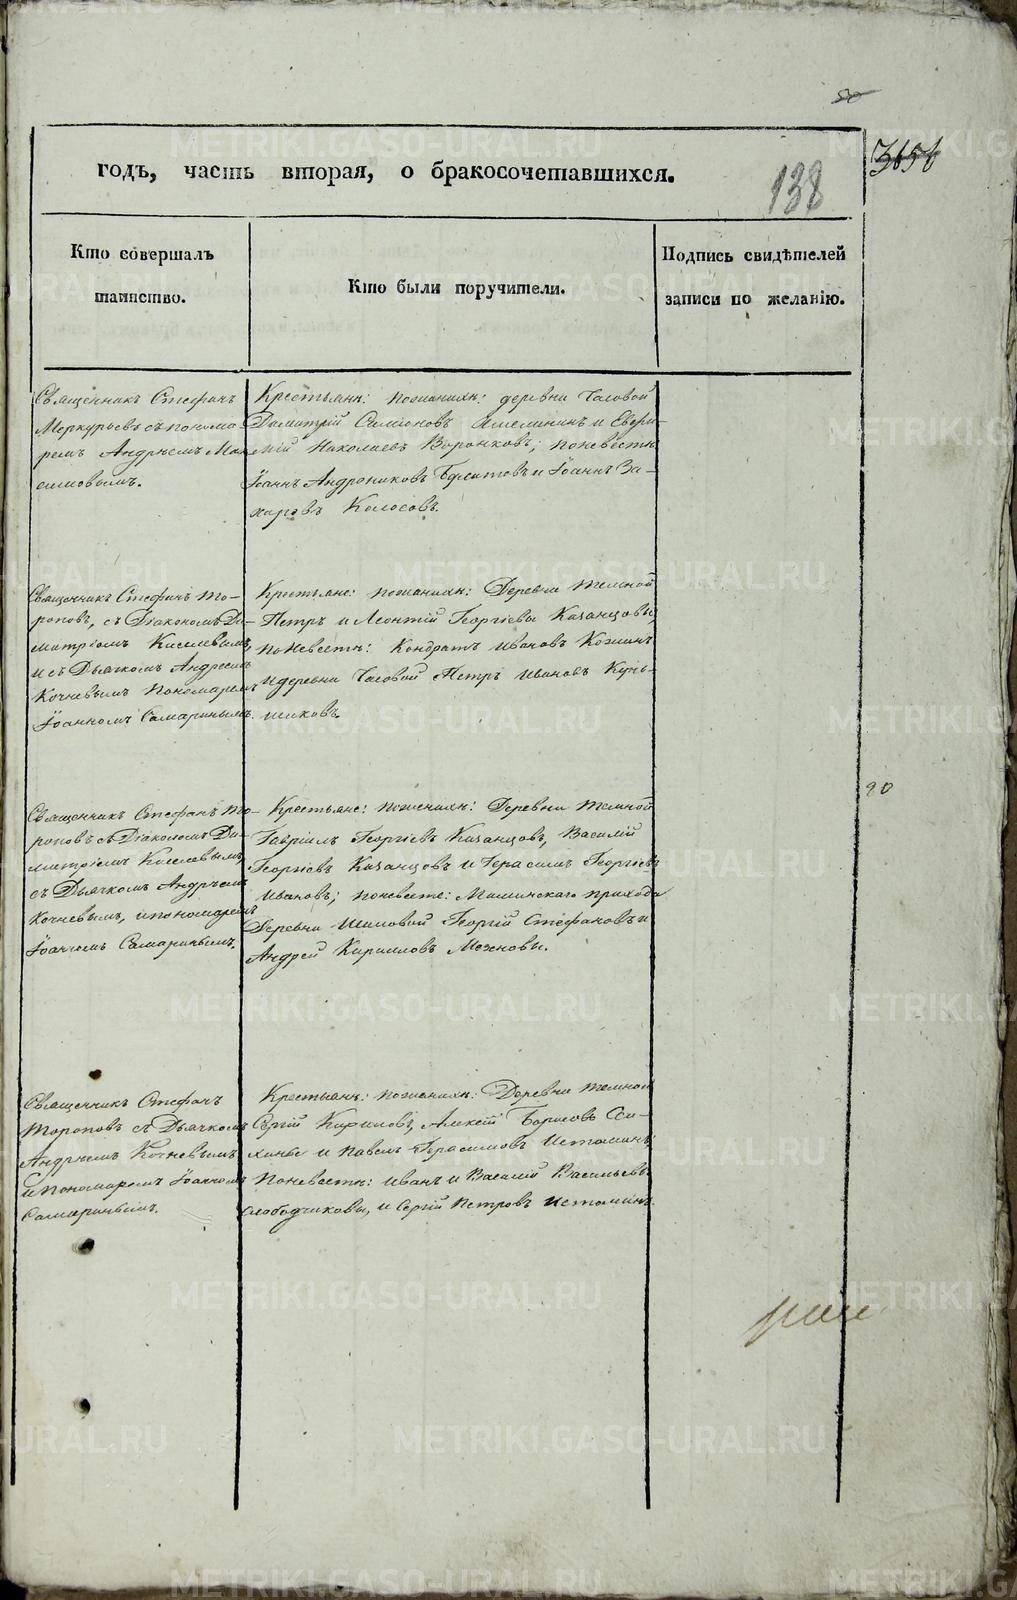 50
годъ, часть вторая, о бракосочетавшихся.
138
3656
Кто совершалъ
таинство.
Кто были поручители.
Подпись свидѣтелей
записи по желанію.
Священникъ Стефанъ
Меркурьевъ съ понома-
ремъ Андрѣемъ
симовымъ.
Крестьяне: пожениxѣ: деревни Часовой
Димитрій Симіоновъ и
Николаевъ Воронковъ; поневѣстѣ
Іоаннъ Андрониковъ и Іоаннъ За-
харовъ Колосовъ.
Священникъ Стефанъ То-
роповъ, съ Діакономъ Ди-
митріемъ Киселевымъ,
и съ Дьячкомъ Андреемъ
Кочневымъ Пономаремъ
Іоанномъ Самаринымъ.
Крестьяне: поженихѣ: Деревни Темной
Петръ и Леонтій Георгіевы Казанцовы,
поневѣстѣ: Кондратъ Ивановъ
и деревни Часовой Петръ Ивановъ Кунь-
щиковъ.
Священникъ Стефанъ То-
роповъ съ Діакономъ Ди-
митріемъ Киселевымъ,
съ Дьячкомъ Андрѣемъ
Кочневымъ, и пономаремъ
Іоанномъ Самаринымъ.
Крестьяне: поженихѣ: Деревни Темной
Гавріилъ Георгіевъ Казанцовъ, Василій
Георгіевъ Казанцовъ и Герасимъ Георгіевъ
Ивановъ; поневѣсте: прихода
Деревни Шиловой Георгій Стефановъ и
Андрей Кирилловъ
90
Священникъ Стефанъ
Тороповъ съ Дьячкомъ
Андрѣемъ Кочневымъ
и пономаремъ Іоанномъ
Самаринымъ.
Крестьяне: поженихѣ: Деревни Темной
Сергій Алексій Борисовъ
и Павелъ Герасимовъ Истоминъ,
поневѣстѣ: Иванъ и Василій Васильевы
Слободчиковы, и Сергій Петровъ Истоминъ.
METRIKI.GASO-URAL.RU